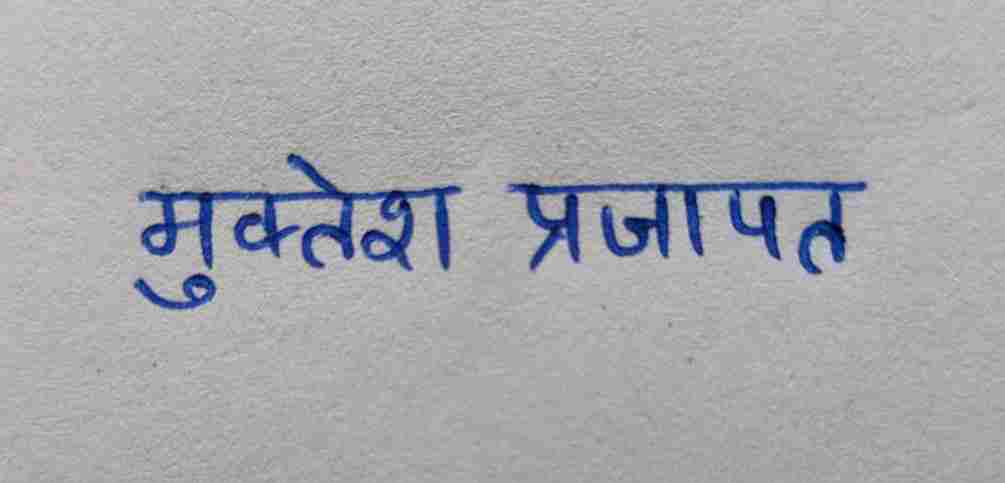 मुक्तेश प्रजापत